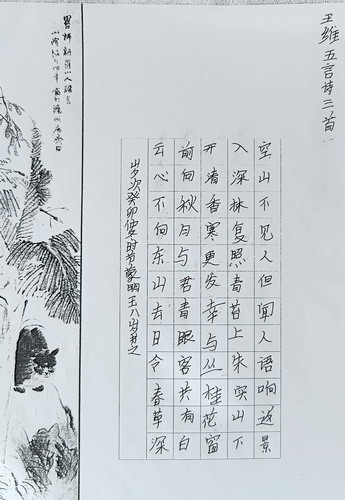 王维五言诗三首
空山不见人但闻人语响返景
入深林复照青苔上朱实山下
开清香寒更发幸与丛桂花窗
前向秋月与君青眼客共有白
云心不向东山去日令春草深
岁次癸卯时节八岁书之